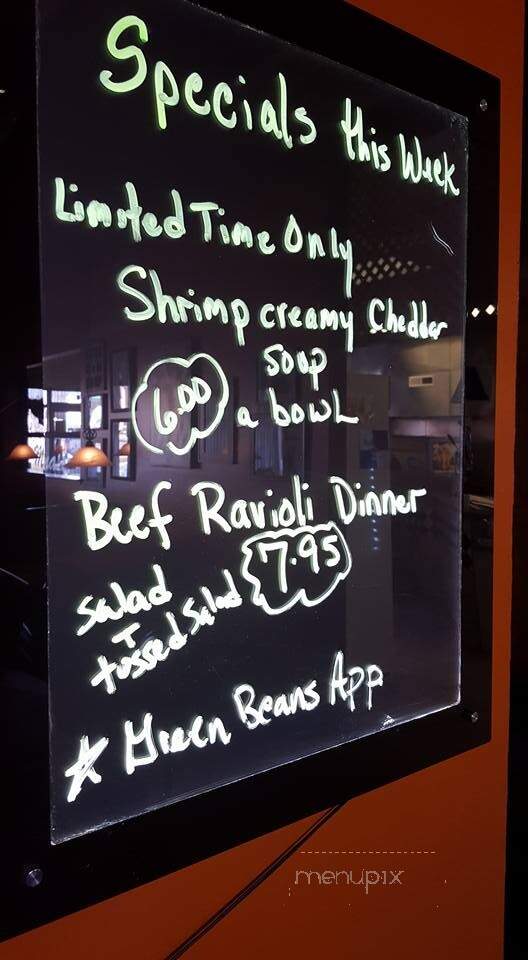 Specials this Week
Limited Time Only
Shrimp creamy Chedder
Soup
6.00 a bowl
Beef Ravioli Dinner
salad 7.95
T
tossed Salad
* Green Beans App
menupix